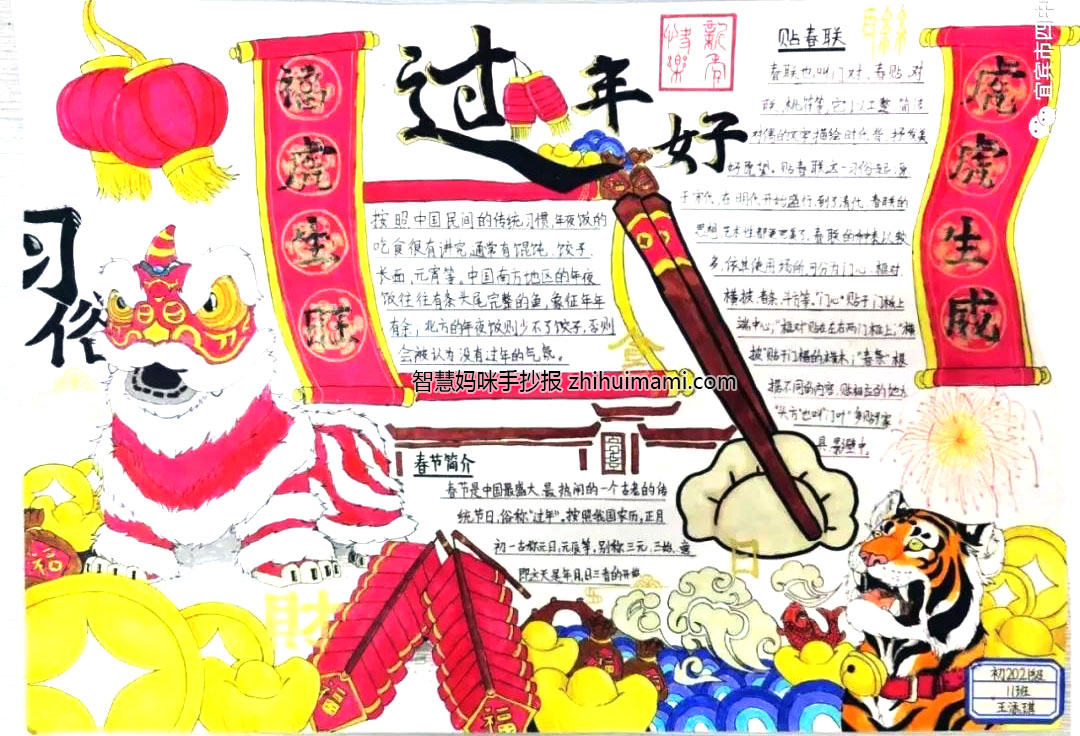 过年好
新年快乐
习俗
福虎生旺
虎虎生威
按照中国民间的传统习惯,年夜饭的
吃食很有讲究,通常有馄饨、饺子、
长面、元宵等。中国南方地区的年夜
饭往往有条头尾完整的鱼,象征年年
有余;北方的年夜饭则少不了饺子,否则
会被认为没有过年的气氛。
智慧妈咪手抄报 zhihuimami.com
春节简介
春节是中国最盛大、最热闹的一个古老的传
统节日,俗称"过年"。按照我国农历,正月
初一古称元日、元辰等,别称三元、三始,意
即这天是年月日三者的开始
贴春联
春联也叫门对、春贴、对
联、桃符等,它以工整、简洁
对偶的文字描绘时代背
好愿望。贴春联这一习俗起
于宋代,在明代开始盛行,到了清代,春联的
思想艺术性都
多,依其使用场所,可分为门心、框对
横披、春条、斗方等。"门心"贴于门板上
端中心;"框对"贴在左右两门框上;"横
披"贴于门楣的横木;"春条"根
据不同的内容,贴相应的地方
"斗方"也叫"门叶"多贴于家
具、影壁中。
财
福
福
福
初2021级
11班
王添琪
宜宾市四中